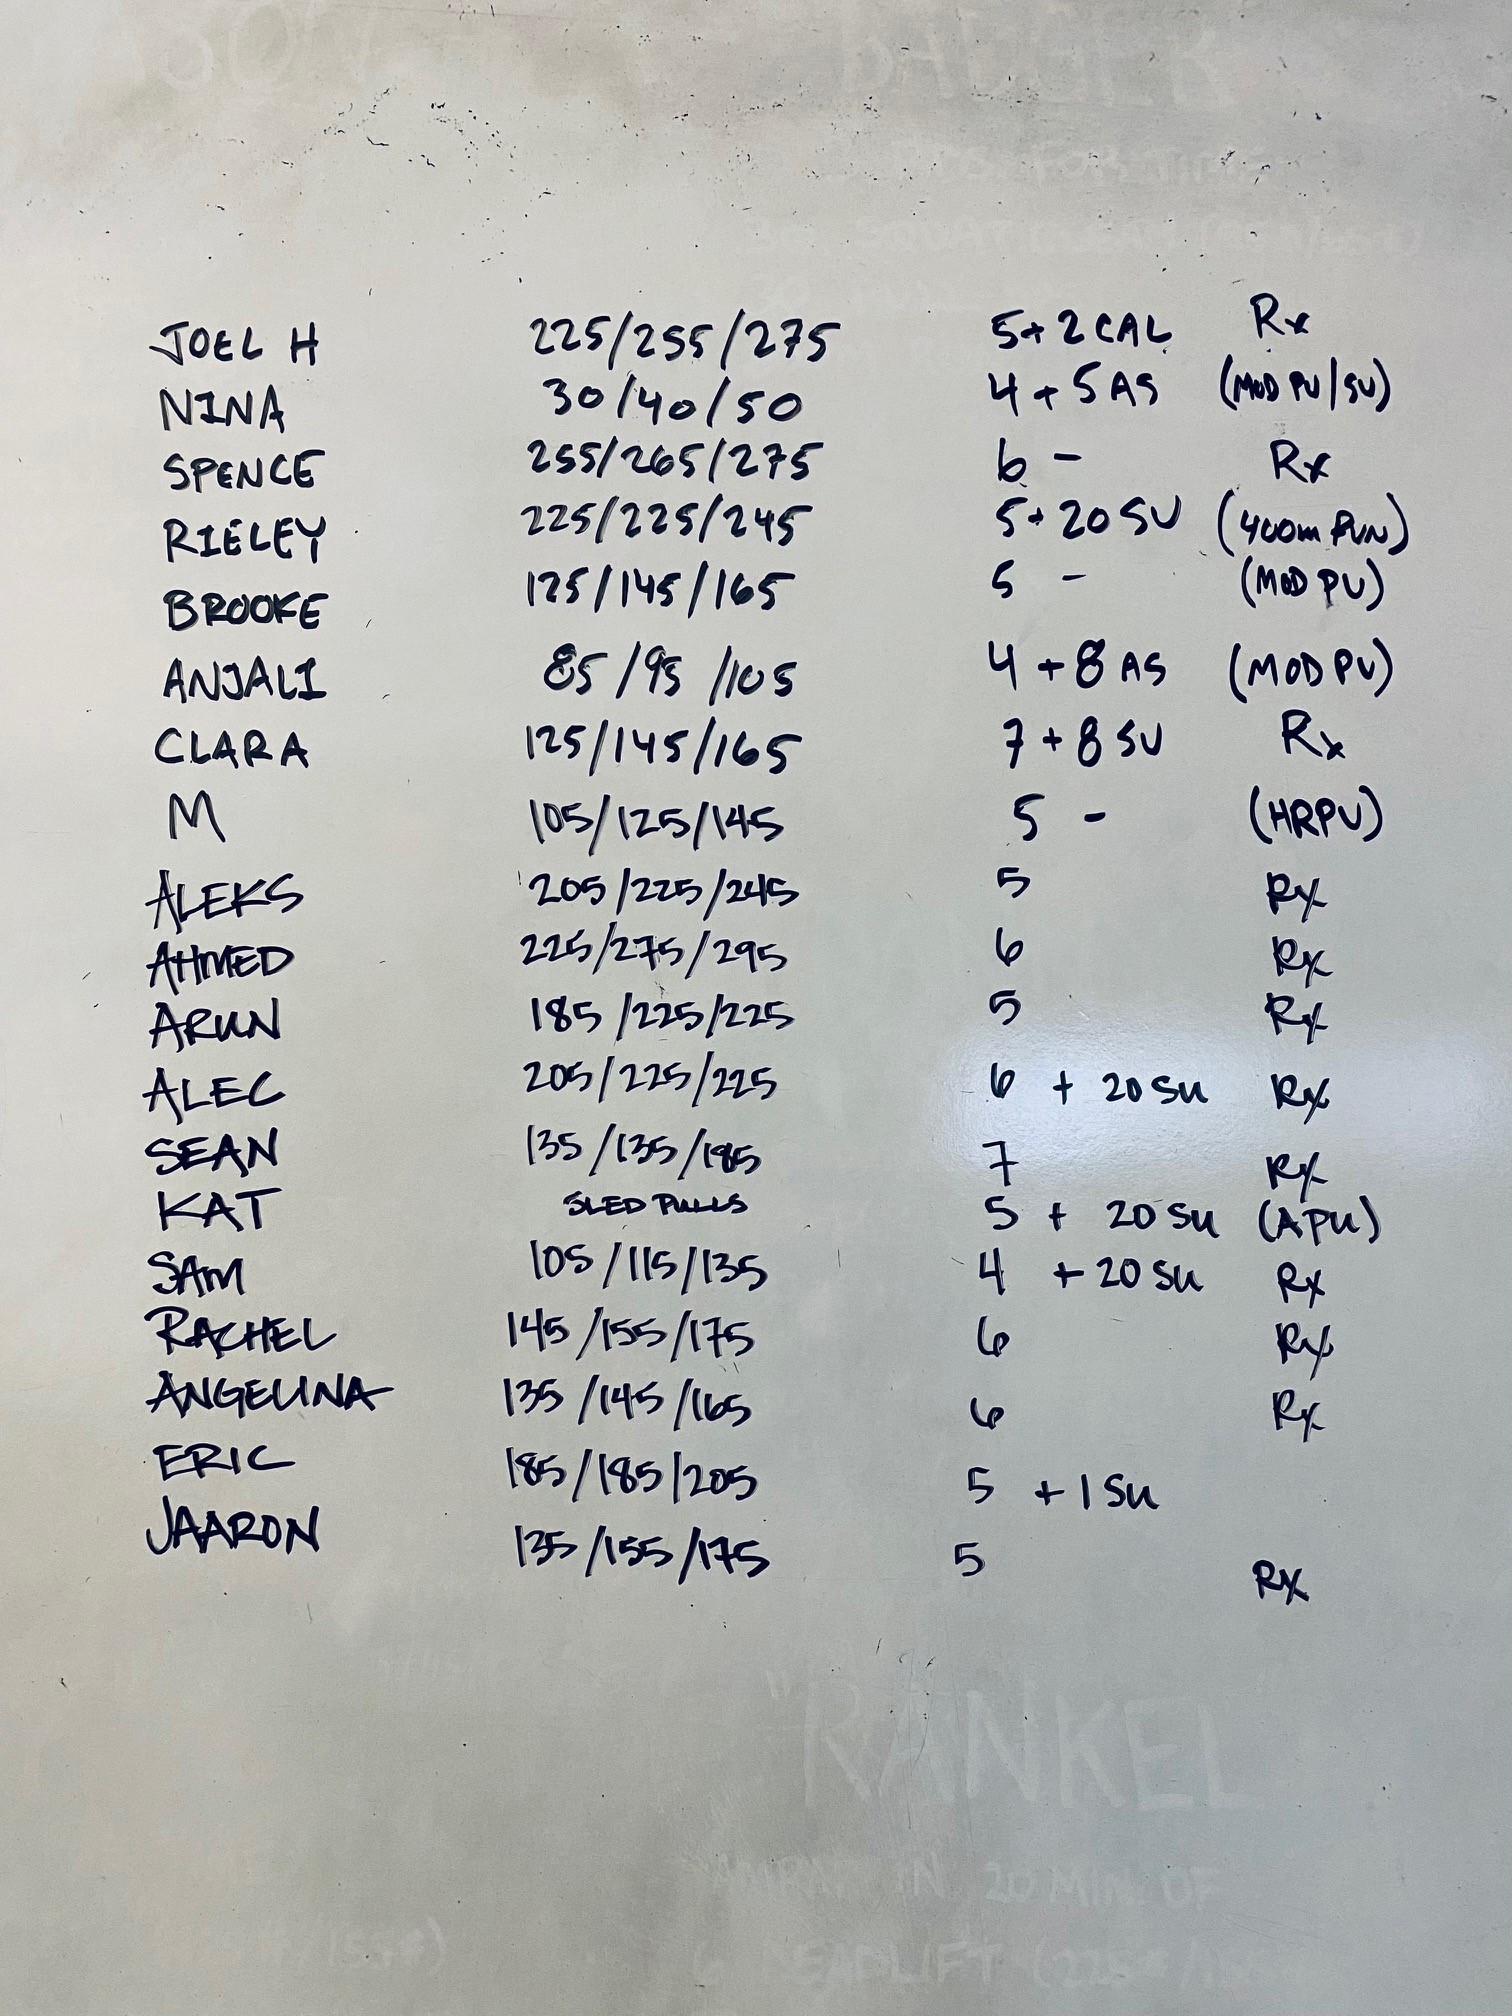 BADGER
FOR TIME
JOEL H 225/255/275 5+2 CAL Rx
NINA 30/40/50 4+5 AS (MOD PU/SU)
SPENCE 255/265/275 6 - Rx
RIELEY 225/225/245 5+20 SU (400m RUN)
BROOKE 125/145/165 5 - (MOD PU)
ANJALI 85/95/105 4+8 AS (MOD PU)
CLARA 125/145/165 7+8 SU Rx
M 105/125/145 5 - (HRPU)
ALEKS 205/225/245 5 Rx
AHMED 225/275/295 6 Rx
ARUN 185/225/225 5 Rx
ALEC 205/225/225 6 + 20 SU Rx
SEAN 135/135/185 7 Rx
KAT SLED PULLS 5 + 20 SU (APU)
SAM 105/115/135 4 + 20 SU Rx
RACHEL 145/155/175 6 Rx
ANGELINA 135/145/165 6 Rx
ERIC 185/185/205 5 + 1 SU
JAARON 135/155/175 5 Rx
"RANKEL"
AMRAP IN 20 MIN OF
6 DEADLIFT (225#/